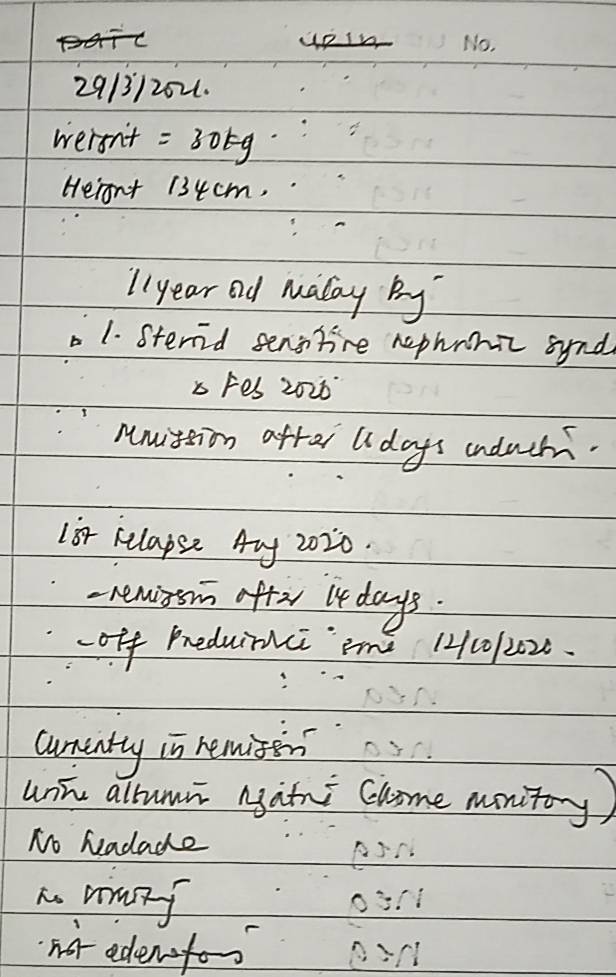 DATE URIN No.
29/3/2021.
Weight = 30kg.
Height 134cm.
11 year old Malay Boy
1. Steroid sensitive nephrotic synd
Feb 2020
remission after 11 days induction.
1st relapse Aug 2020.
- remission after 14 days.
- off Prednisolone since 12/10/2020.
Currently in remission
Urine albumin negative (home monitoring)
No headache
no vomiting
not edematous